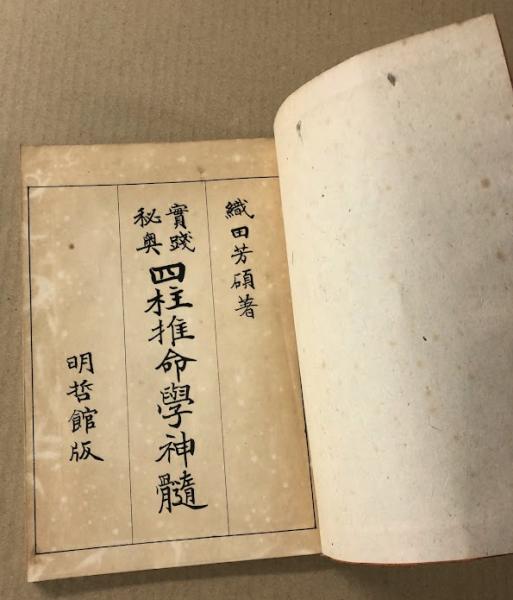 織田芳碩著
實踐
秘奥
四柱推命學神髓
明哲館版